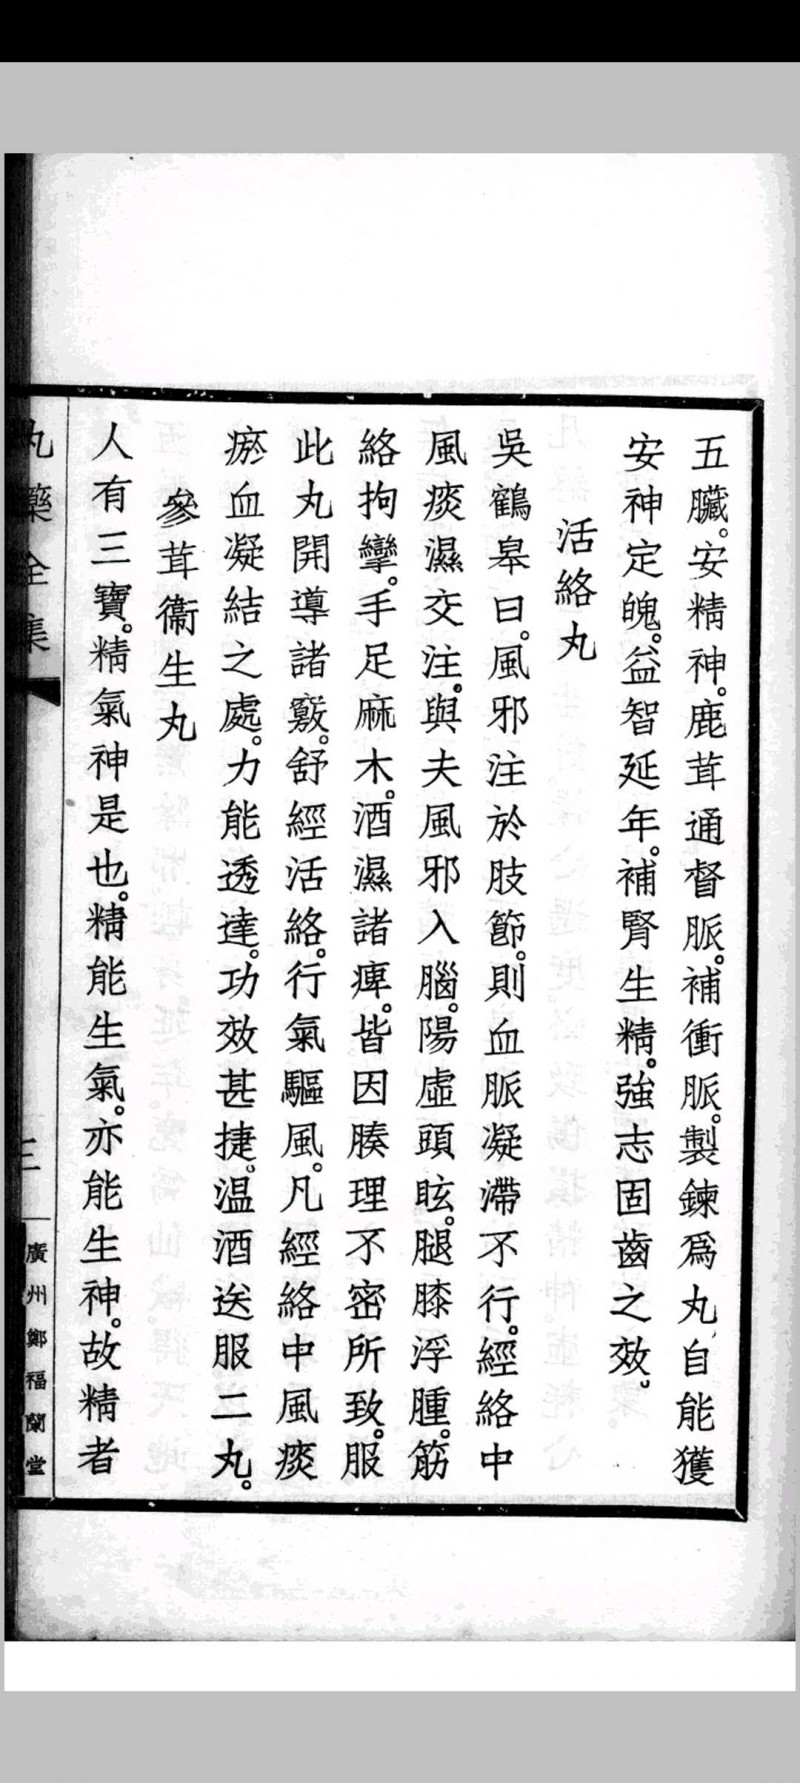 五臟。安精神。鹿茸通督脈。補衝脈。製鍊爲丸、自能獲
安神定魄。益智延年。補腎生精。強志固齒之效。
活絡丸
吳鶴皋曰。風邪注於肢節。則血脈凝滯不行。經絡中
風痰濕交注。與夫風邪入腦。陽虛頭眩。腿膝浮腫。筋
絡拘攣。手足麻木。酒濕諸痺。皆因腠理不密所致。服
此丸開導諸竅。舒經活絡。行氣驅風。凡經絡中風痰
瘀血凝結之處。力能透達。功效甚捷。温酒送服二丸。
參茸衞生丸
人有三寶。精氣神是也。精能生氣。亦能生神。故精者
丸藥全集
三
廣州鄭福蘭堂